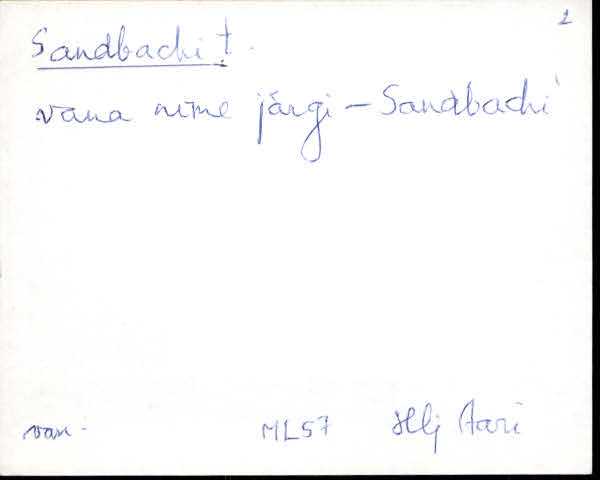 2
Sandbachi †.
vana nime järgi – Sandbachi
van. ML57 Hlj Aari